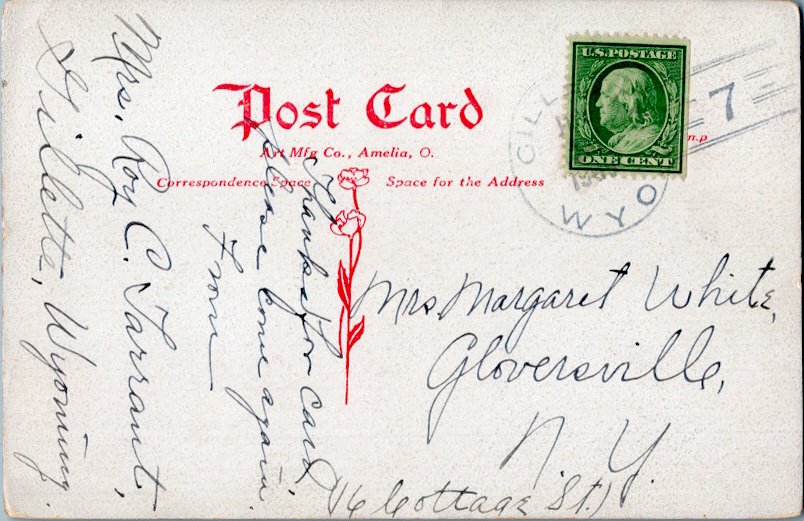 Post Card
Art Mfg Co., Amelia, O.
Correspondence Space
Space for the Address
U.S. POSTAGE
ONE CENT
GILL
WYO
7
Thanks for card
please come again.
From
Mrs. Roy C. Tarrant,
Gillette, Wyoming.
Mrs Margaret White,
Gloversville,
N. Y.
16 Cottage St.)